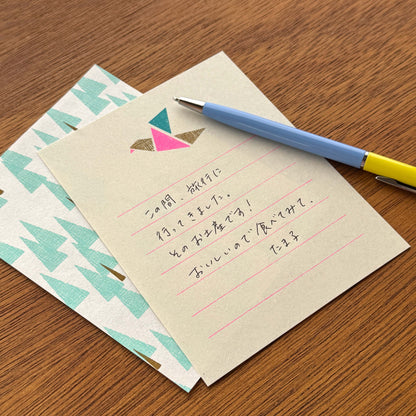 この間、旅行に
行ってきました。
そのお土産です!
おいしいので食べてみて。
たま子